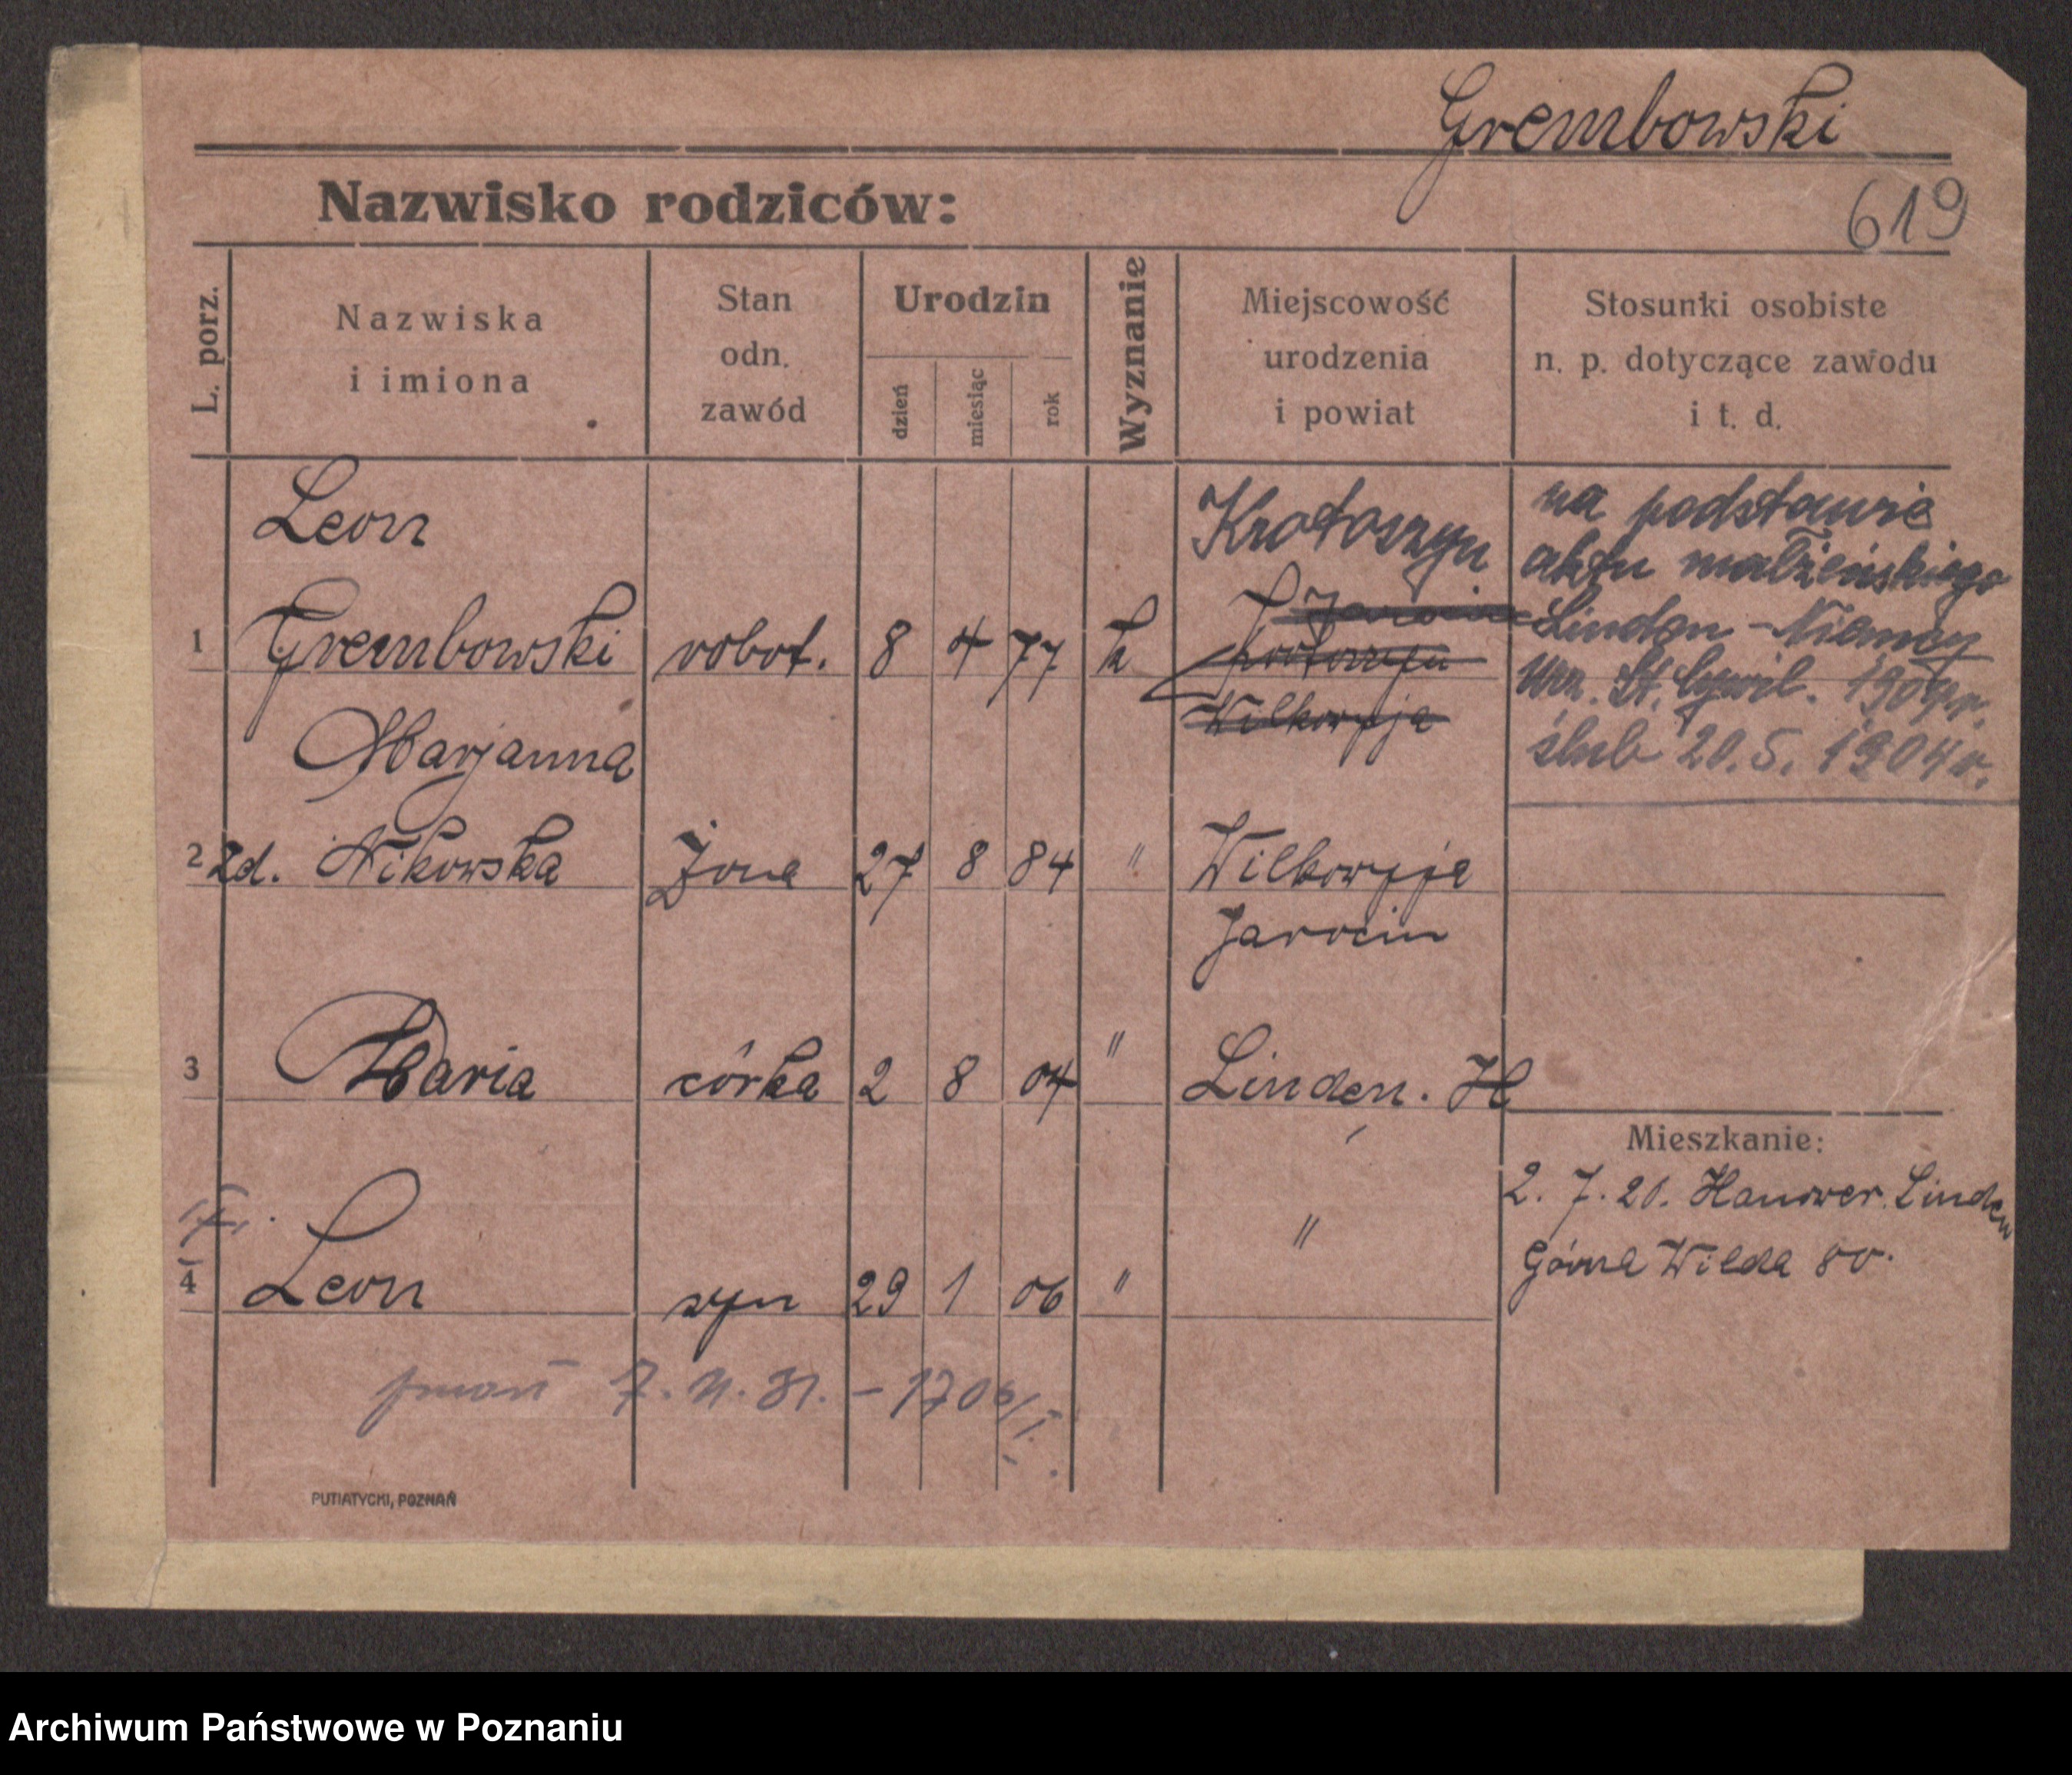 Grembowski
619
Nazwisko rodziców:
L. porz.
Nazwiska
i imiona
Stan
odn.
zawód
Urodzin
dzień
miesiąc
rok
Wyznanie
Miejscowość
urodzenia
i powiat
Stosunki osobiste
n. p. dotyczące zawodu
i t. d.
Leon
1 Grembowski robot. 8 4 77 k
Krotoszyn
Jarocin
Krotoszyn
Wilkowyja
na podstawie
aktu małżeńskiego
Linden - Niemcy
Urz. St. Cywil. 1904 r.
ślub 20.5.1904 r.
Marjanna
2 zd. Nikowska żona 27 8 84 " Wilkowyja
Jarocin
3 Maria córka 2 8 04 " Linden. H
Mieszkanie:
2. 7. 20. Hanower. Linden
Górna Wilda 80.
4 Leon syn 29 1 06 " "
7. 31. - 1706/
PUTIATYCKI, POZNAŃ
Archiwum Państwowe w Poznaniu